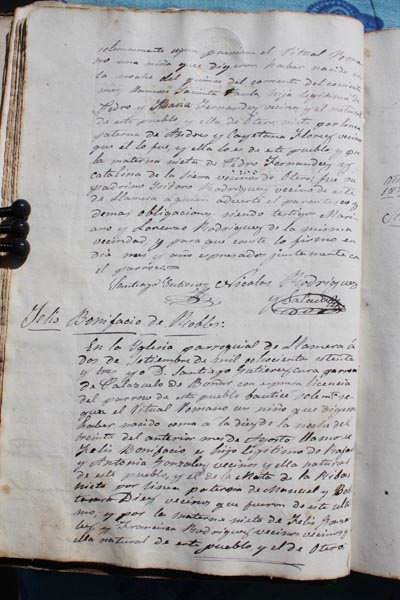 solemnemente segun previene el Ritual Roma
no una niña que digeron haber nacido en
la noche del quince del corriente del corriente
mes, llamose Jacinta Paula hija legitima de
Pedro y Maria Fernandez vecinos y el natural
de este pueblo y ella de Otero nieta por linea
paterna de Andres y Cayetana Florez vecinos
que el lo fue y ella lo es de este pueblo y por
la materna nieta de Pedro Fernandez y
Catalina de la Sierra vecinos de Otero; fue su
padrino Isidoro Rodriguez vecino de este
de Llamera a quien adverti el parentesco y
demas obligaciones, siendo testigos Mari
ano y Lorenzo Rodriguez de la misma
vecindad, y para que conste lo firmo en
dia mes y año espresados juntamente con
el parroco
Santiago Gutierrez Nicolas Rodriguez
y Salada
Felis Bonifacio de Robles:
En la Iglesia parroquial de Llamera a
dos de Setiembre de mil ochociento setenta
y tres yo D. Santiago Gutierez cura parroco
de Palazuelo de Boñar con espresa licencia
del parroco de este pueblo bautice solemne
que el Ritual Romano un niño que digeron
haber nacido como a la diez de la noche del
treinta del anterior mes de Agosto llamose
Felis Bonifacio es hijo legitimo de Rafael
y Antonia Gonzalez vecinos y ella natural
de este pueblo, y el de la Mata de la Riba
nieto por linea paterna de Manuel y Bal
tasara Diez vecinos que fueron de este ulti
mo, y por la materna nieto de Felis Gonza
lez y Francisca Rodriguez vecinos
ella natural de este pueblo y el de Otero